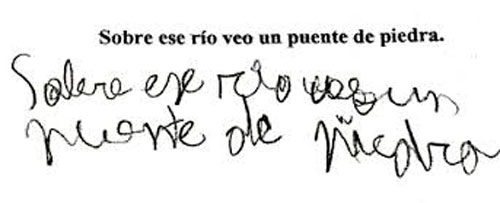 Sobre ese río veo un puente de piedra.
Sobre ese río veo un
puente de piedra